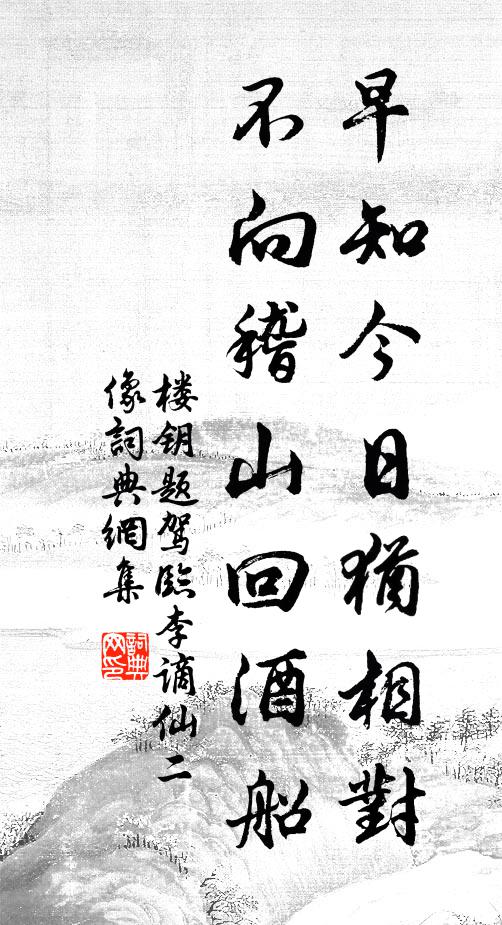 早知今日猶相對
不向稽山回酒船
楼钥题駕臨李谪仙二
像詞典網集
詞典
网印